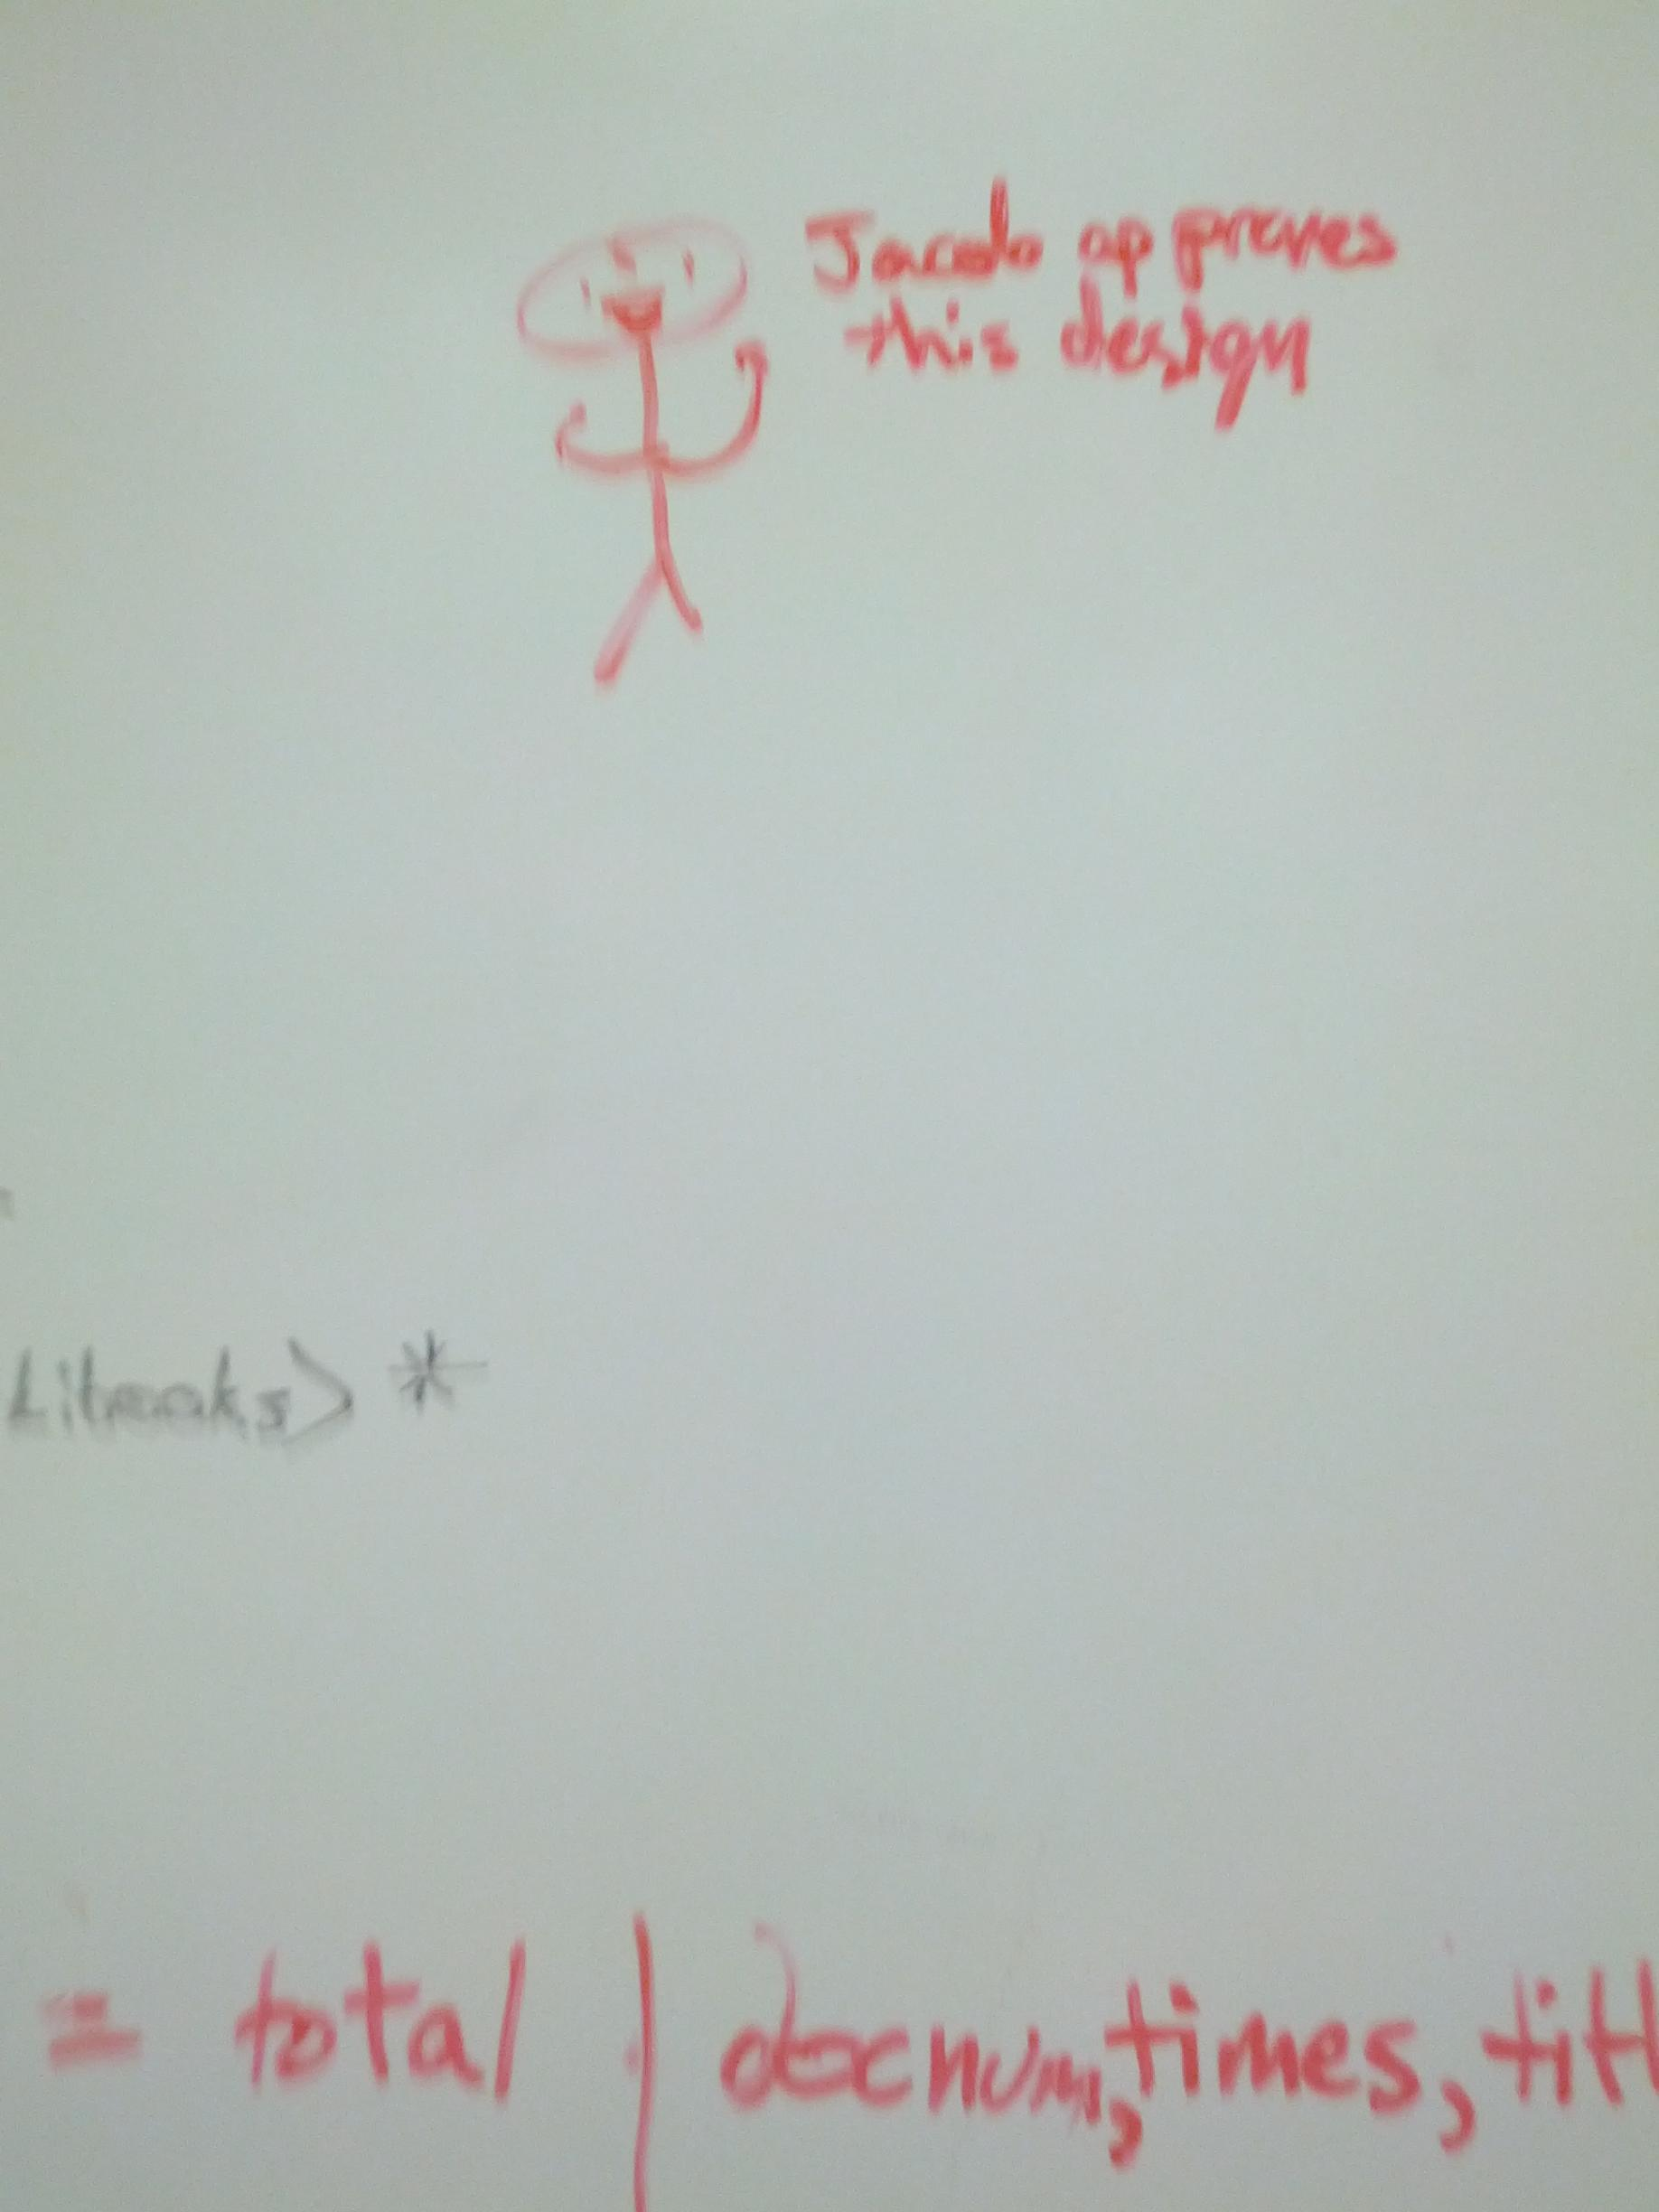 Jacob approves
this design
*
= total | docnum, times, titl